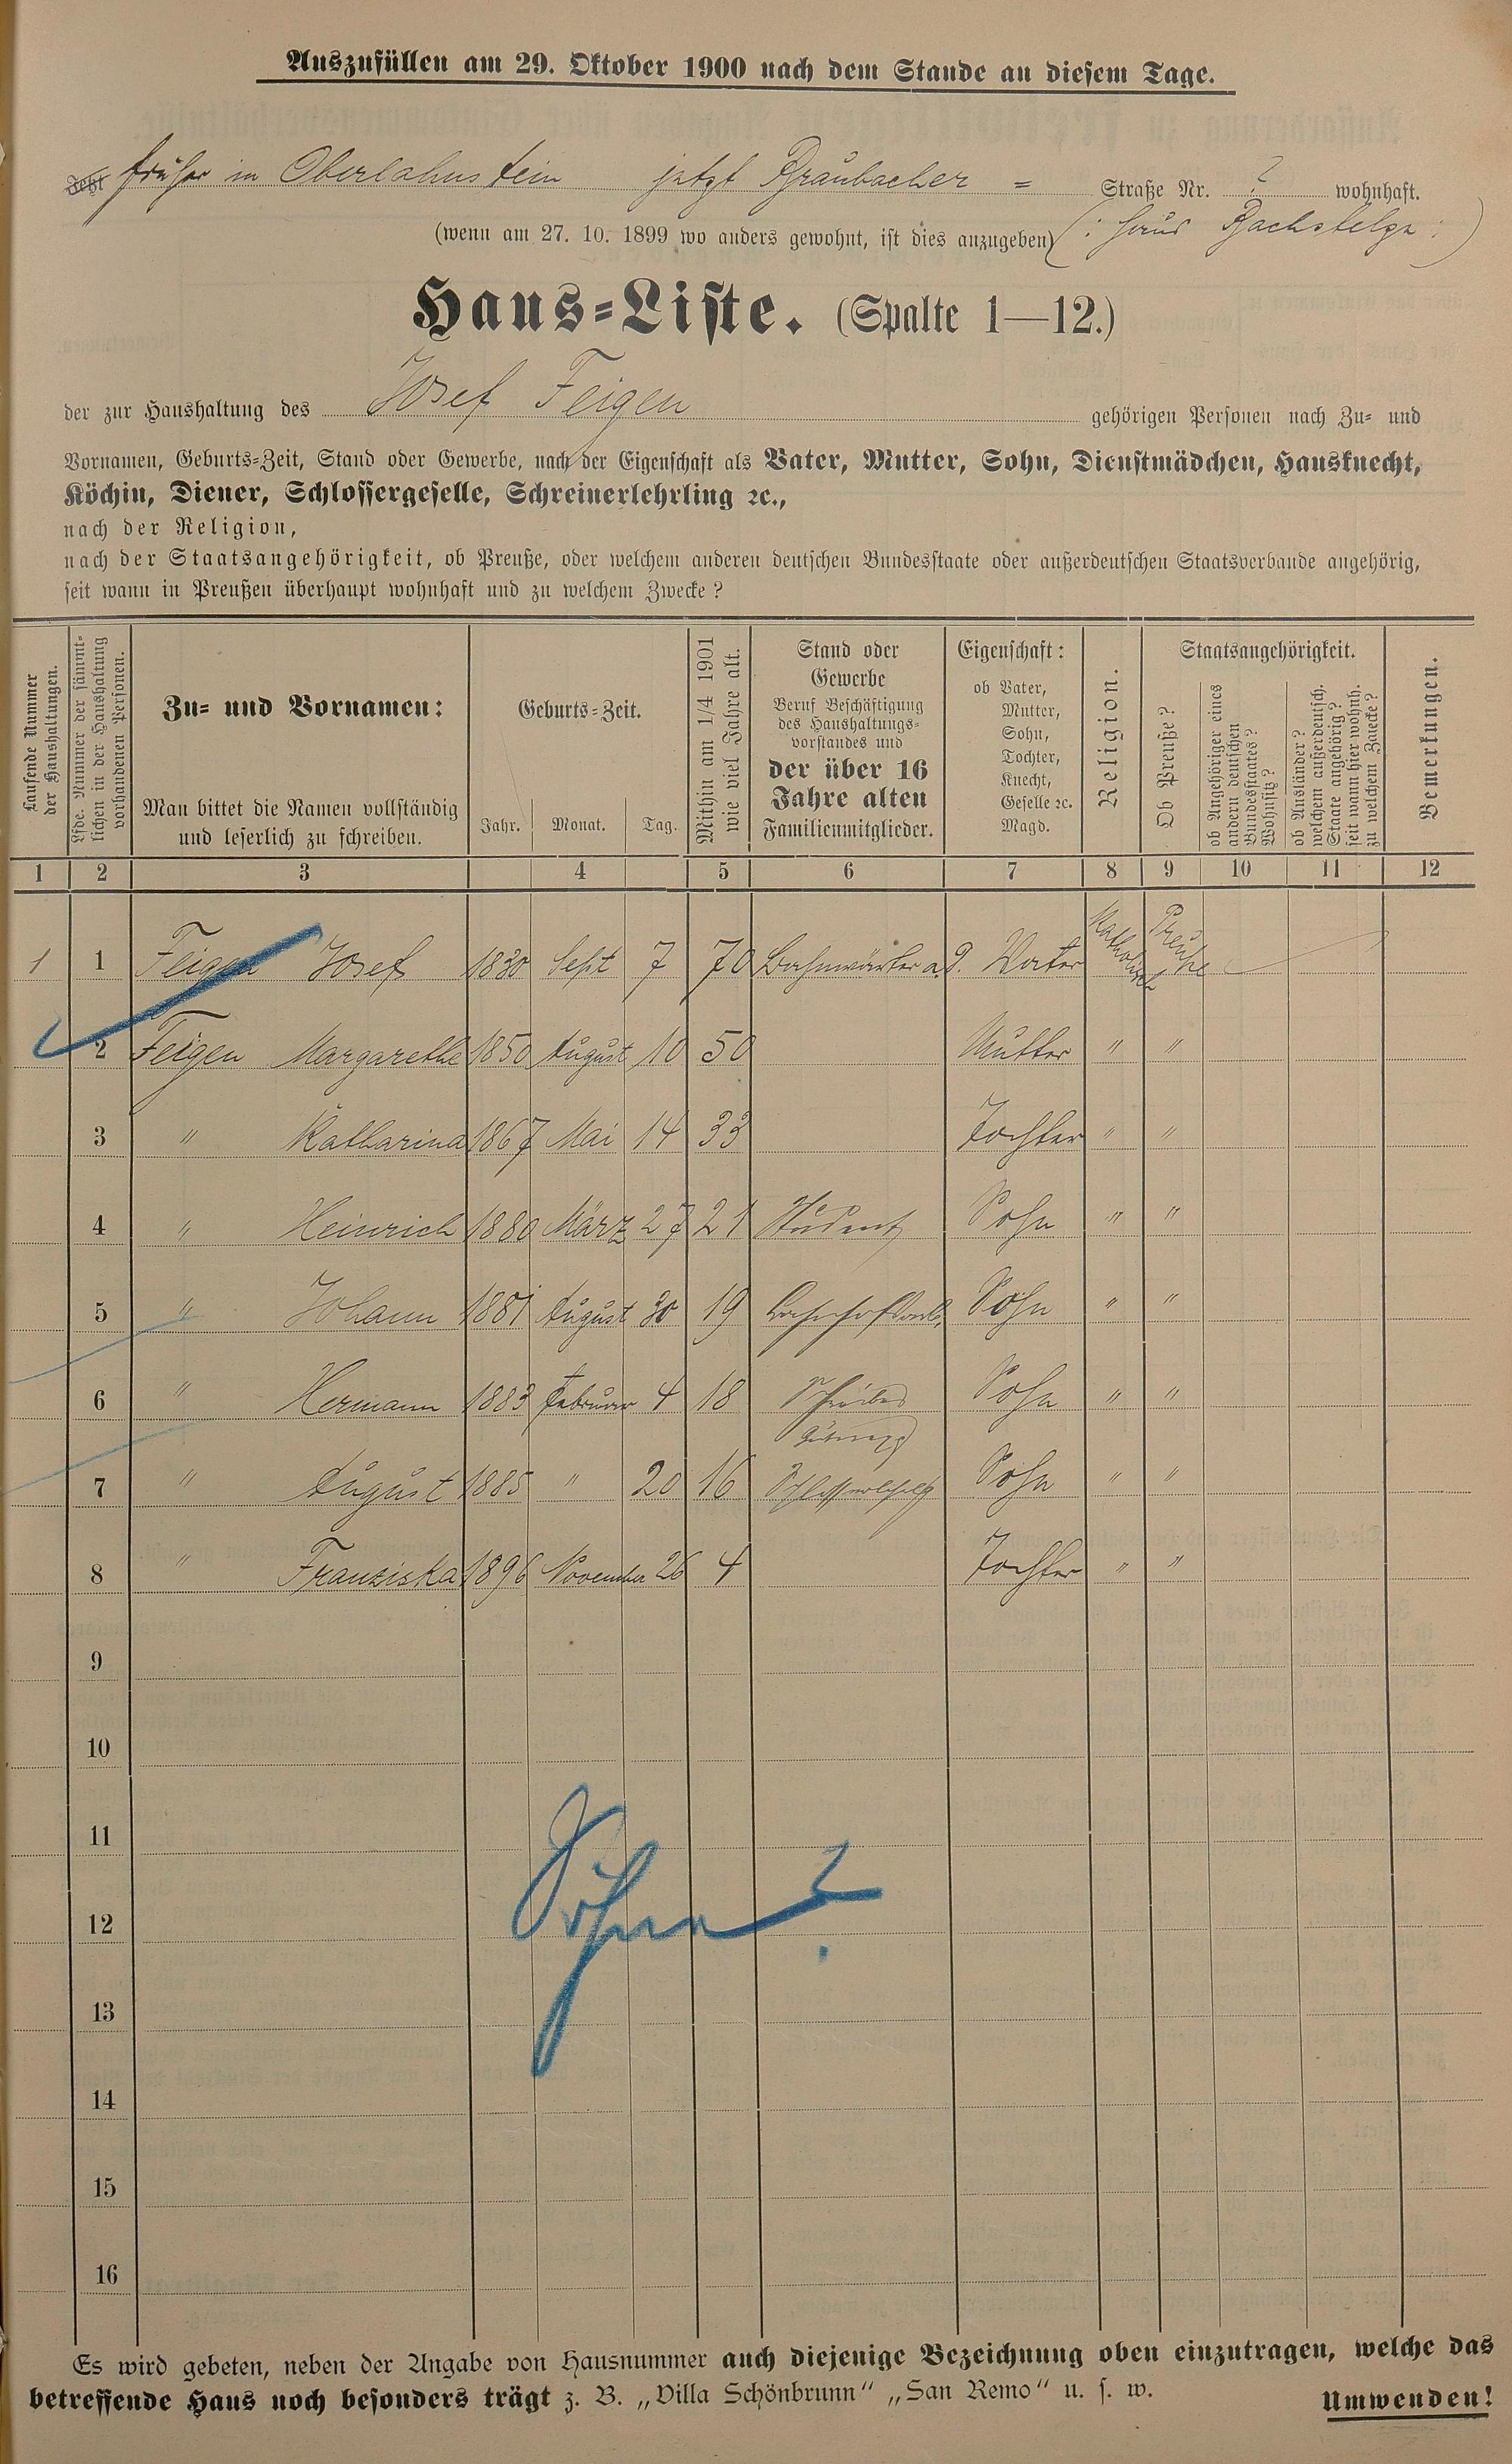 Auszufüllen am 29. Oktober 1900 nach dem Stande an diesem Tage.
Jetzt früher in Oberlahnstein jetzt Braubacher = Straße Nr. ? wohnhaft.
(wenn am 27. 10. 1899 wo anders gewohnt, ist dies anzugeben) (: Haus Bachstelze :)
Haus=Liste. (Spalte 1—12.)
der zur Haushaltung des Josef Feigen gehörigen Personen nach Zu= und
Vornamen, Geburts=Zeit, Stand oder Gewerbe, nach der Eigenschaft als Vater, Mutter, Sohn, Dienstmädchen, Hausknecht,
Köchin, Diener, Schlossergeselle, Schreinerlehrling ꝛc.,
nach der Religion,
nach der Staatsangehörigkeit, ob Preuße, oder welchem anderen deutschen Bundesstaate oder außerdeutschen Staatsverbande angehörig,
seit wann in Preußen überhaupt wohnhaft und zu welchem Zwecke?
Laufende Nummer
der Haushaltungen.
Lfde. Nummer der sämmt-
lichen in der Haushaltung
vorhandenen Personen.
Zu= und Vornamen:
Man bittet die Namen vollständig
und leserlich zu schreiben.
Geburts=Zeit.
Jahr. Monat. Tag.
Mithin am 1/4 1901
wie viel Jahre alt.
Stand oder
Gewerbe
Beruf Beschäftigung
des Haushaltungs-
vorstandes und
der über 16
Jahre alten
Familienmitglieder.
Eigenschaft:
ob Vater,
Mutter,
Sohn,
Tochter,
Knecht,
Geselle ꝛc.
Magd.
Religion.
Staatsangehörigkeit.
Ob Preuße?
ob Angehöriger eines
andern deutschen
Bundesstaates?
Wohnsitz?
ob Ausländer?
welchem außerdeutsch.
Staate angehörig?
seit wann hier wohnh.
zu welchem Zwecke?
Bemerkungen.
1 2 3 4 5 6 7 8 9 10 11 12
1 1 Feigen Josef 1830 Sept 7 70 Bahnwärter a. D. Vater Katholisch Preuße
2 Feigen Margarethe 1850 August 10 50 Mutter " "
3 " Katharina 1867 Mai 14 33 Tochter " "
4 " Heinrich 1880 März 27 21 Student Sohn " "
5 " Johann 1881 August 30 19 Sohn " "
6 " Hermann 1883 Februar 4 18 Sohn " "
7 " August 1885 " 20 16 Sohn " "
8 " Franziska 1896 November 26 4 Tochter " "
9
10
11
12
13
14
15
16
Es wird gebeten, neben der Angabe von Hausnummer auch diejenige Bezeichnung oben einzutragen, welche das
betreffende Haus noch besonders trägt z. B. „Villa Schönbrunn“ „San Remo“ u. s. w.
Umwenden!